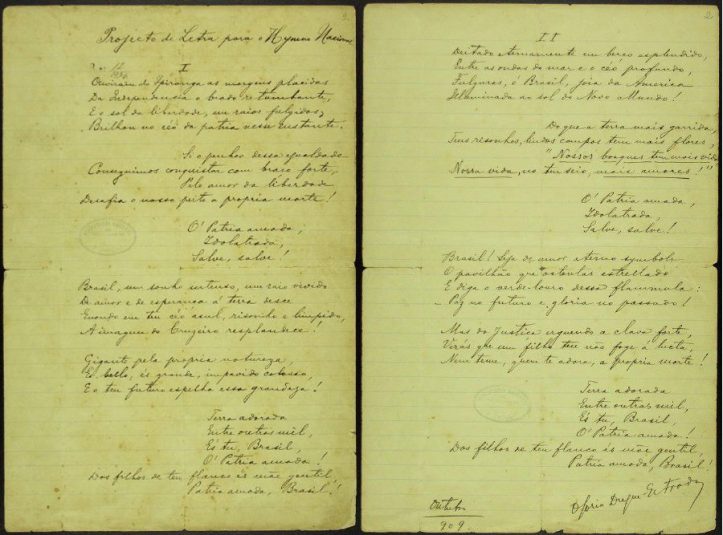 Projecto de Letra para o Hymno Nacional
I
Ouviram do Ypiranga as margens placidas
Da Independencia o brado retumbante,
E o sol da liberdade, em raios fulgidos,
Brilhou no céo da patria nesse instante.
Si o penhor dessa igualdade
Conseguimos conquistar com braço forte,
Pelo amor da liberdade
Desafia o nosso peito a propria morte!
O' Patria amada,
Idolatrada,
Salve, salve!
Brasil, um sonho intenso, um raio vivido
De amor e de esperança á terra desce
Quando em teu céo azul, risonho e limpido,
A imagem do Cruzeiro resplandece!
Gigante pela propria natureza,
És bello, és grande, impavido colosso,
E o teu futuro espelha essa grandeza!
Terra adorada
Entre outras mil,
És tu, Brasil,
O' Patria amada!
Dos filhos de teu flanco és mãe gentil,
Patria amada, Brasil!
2
II
Deitado eternamente em berço esplendido,
Entre as ondas do mar e o céo profundo,
Fulguras, ó Brasil, joia da America
Illuminada ao sol do Novo Mundo!
Do que a terra mais garrida,
Teus risonhos, lindos campos tem mais flores,
"Nossos bosques tem mais vida
Nossa vida, no teu seio, mais amores!"
O' Patria amada,
Idolatrada,
Salve, salve!
Brasil! Seja de amor eterno symbolo
O pavilhão que ostentas estrellado
E diga o verde-louro dessa flammula:
- Paz no futuro e gloria no passado!
Mas da Justiça erguendo a clava forte,
Verás que um filho teu não foge á lucta,
Nem teme, quem te adora, a propria morte!
Terra adorada
Entre outras mil,
És tu, Brasil,
O' Patria amada!
Dos filhos de teu flanco és mãe gentil,
Patria amada, Brasil!
Osorio Duque Estrada
Outubro
909